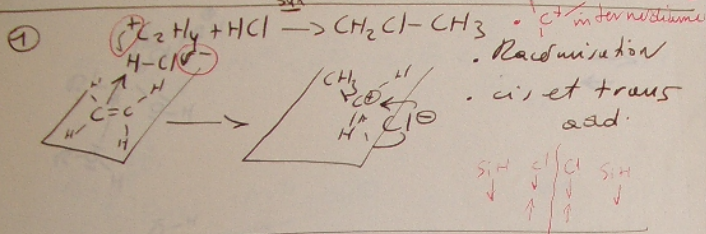 syn
① C₂H₄ + HCl → CH₂Cl – CH₃
δ⁺ H–Cl δ⁻
• C⁺ intermédiaire
• Racémisation
• cis et trans
add.
H H
C = C
H H
CH₃ H
C⊕
H Cl⊖
SiH Cl Cl SiH
↓ ↓ ↓ ↓
↑ ↑